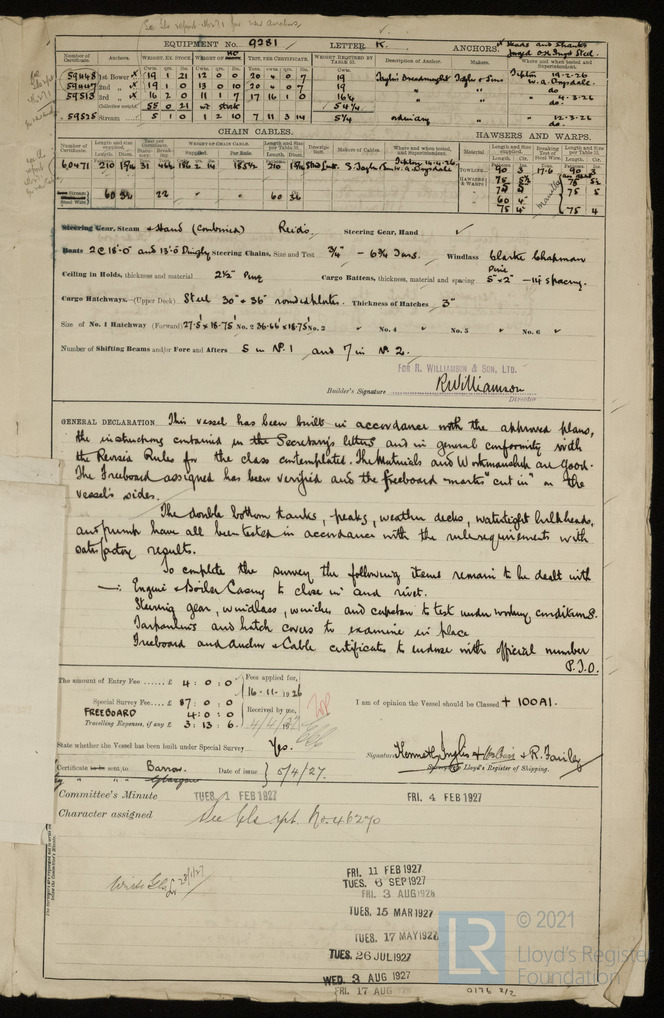 EQUIPMENT No. 9281 LETTER K. ANCHORS.
Number of Certificate. Anchors. WEIGHT, EX. STOCK. WEIGHT OF TEST, PER CERTIFICATE. WEIGHT REQUIRED BY TABLE 53. Description of Anchor. Makers. Where and when tested and Superintendent.
59448 1st Bower 19 1 21 12 0 0 20 4 0 7 19 Taylors Dreadnought Taylor & Sons Tipton 19-2-26
59447 2nd " 19 1 0 13 0 10 20 4 0 7 19 " " W. A. Drysdale.
59513 3rd " 16 2 0 11 1 7 17 16 1 0 16¼ " " do 4-3-26
Collective weight 55 0 21 54¼ do
59525 Stream 5 1 0 1 2 10 7 11 3 14 5¼ ordinary " do 12-3-26
CHAIN CABLES. HAWSERS AND WARPS.
Number of Certificate. Length and size supplied. Test per Certificate. WEIGHT OF CHAIN CABLE. Length and size per Table 53. Makers of Cables. Where and when tested, and Superintendent. Material Length and size supplied. Breaking Test of Steel Wire. Length and size per Table 53.
60471 210
60 22 60
TOWLINE 90 3 17·6 90 3
HAWSERS & WARPS 75
60 4"
75 4" 75 4
Steering Gear, Steam & Hand (Combined) Reids Steering Gear, Hand
Boats 2 @ 18'-0" and 13'-0 Dinghy Steering Chains, Size and Test ¾" - 6¾ Tons. Windlass Clarke Chapman
Ceiling in Holds, thickness and material 2½" Pine Cargo Battens, thickness, material and spacing 5"x2" Pine -14" spacing.
Cargo Hatchways.—(Upper Deck) Steel 30" & 36" round plates. Thickness of Hatches 3"
Size of No. 1 Hatchway (Forward) 27·5' x 18·75' No. 2 36·66' x 18·75' No. 3 " No. 4 " No. 5 " No. 6 "
Number of Shifting Beams and/or Fore and Afters 5 in No. 1 and 7 in No. 2.
FOR R. WILLIAMSON & SON, LTD.
Builder's Signature R Williamson
DIRECTOR
GENERAL DECLARATION This vessel has been built in accordance with the approved plans,
the instructions contained in the Secretary's letters and in general conformity with
the Revised Rules for the class contemplated. The Materials and Workmanship are good.
The Freeboard assigned has been verified and the freeboard marks "cut in" on the
vessel's sides.
The double bottom tanks, peaks, weather decks, watertight bulkheads,
and pumps have all been tested in accordance with the rule requirements with
satisfactory results.
To complete the survey the following items remain to be dealt with
—: Engine & Boiler Casing to close in and rivet.
Steering gear, windlass, winches and capstan to test under working conditions.
Tarpaulins and hatch covers to examine in place
Freeboard and Anchor & Cable certificates to endorse with official number
P.T.O.
The amount of Entry Fee ...... £ 4 : 0 : 0 Fees applied for,
Special Survey Fee... £ 87 : 0 : 0 16-11-1926
FREEBOARD 4 : 0 : 0 Received by me,
Travelling Expenses, if any £ 3 : 13 : 6 4/4/27
I am of opinion the Vessel should be Classed + 100A1.
State whether the Vessel has been built under Special Survey Yes.
Signature Kenneth Inglis & R. Fairley
Lloyd's Register of Shipping.
Certificate sent to Barrow. Date of issue 5/4/27.
Glasgow
Committee's Minute TUES. 1 FEB 1927 FRI. 4 FEB 1927
Character assigned See Gls rpt. No. 46270
Write Gls 28/1/27
FRI. 11 FEB 1927
TUES. 6 SEP 1927
FRI. 3 AUG 1928
TUES. 15 MAR 1927
TUES. 17 MAY 1927
TUES. 26 JUL 1927
WED. 3 AUG 1927
FRI. 17 AUG
LR © 2021
Lloyd's Register
Foundation
0176 2/2